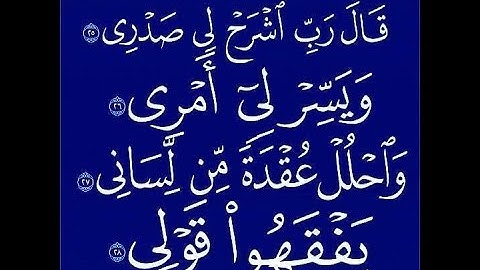 قَالَ رَبِّ ٱشْرَحْ لِى صَدْرِى ٢٥
وَيَسِّرْ لِىٓ أَمْرِى ٢٦
وَٱحْلُلْ عُقْدَةً مِّن لِّسَانِى ٢٧
يَفْقَهُوا۟ قَوْلِى ٢٨